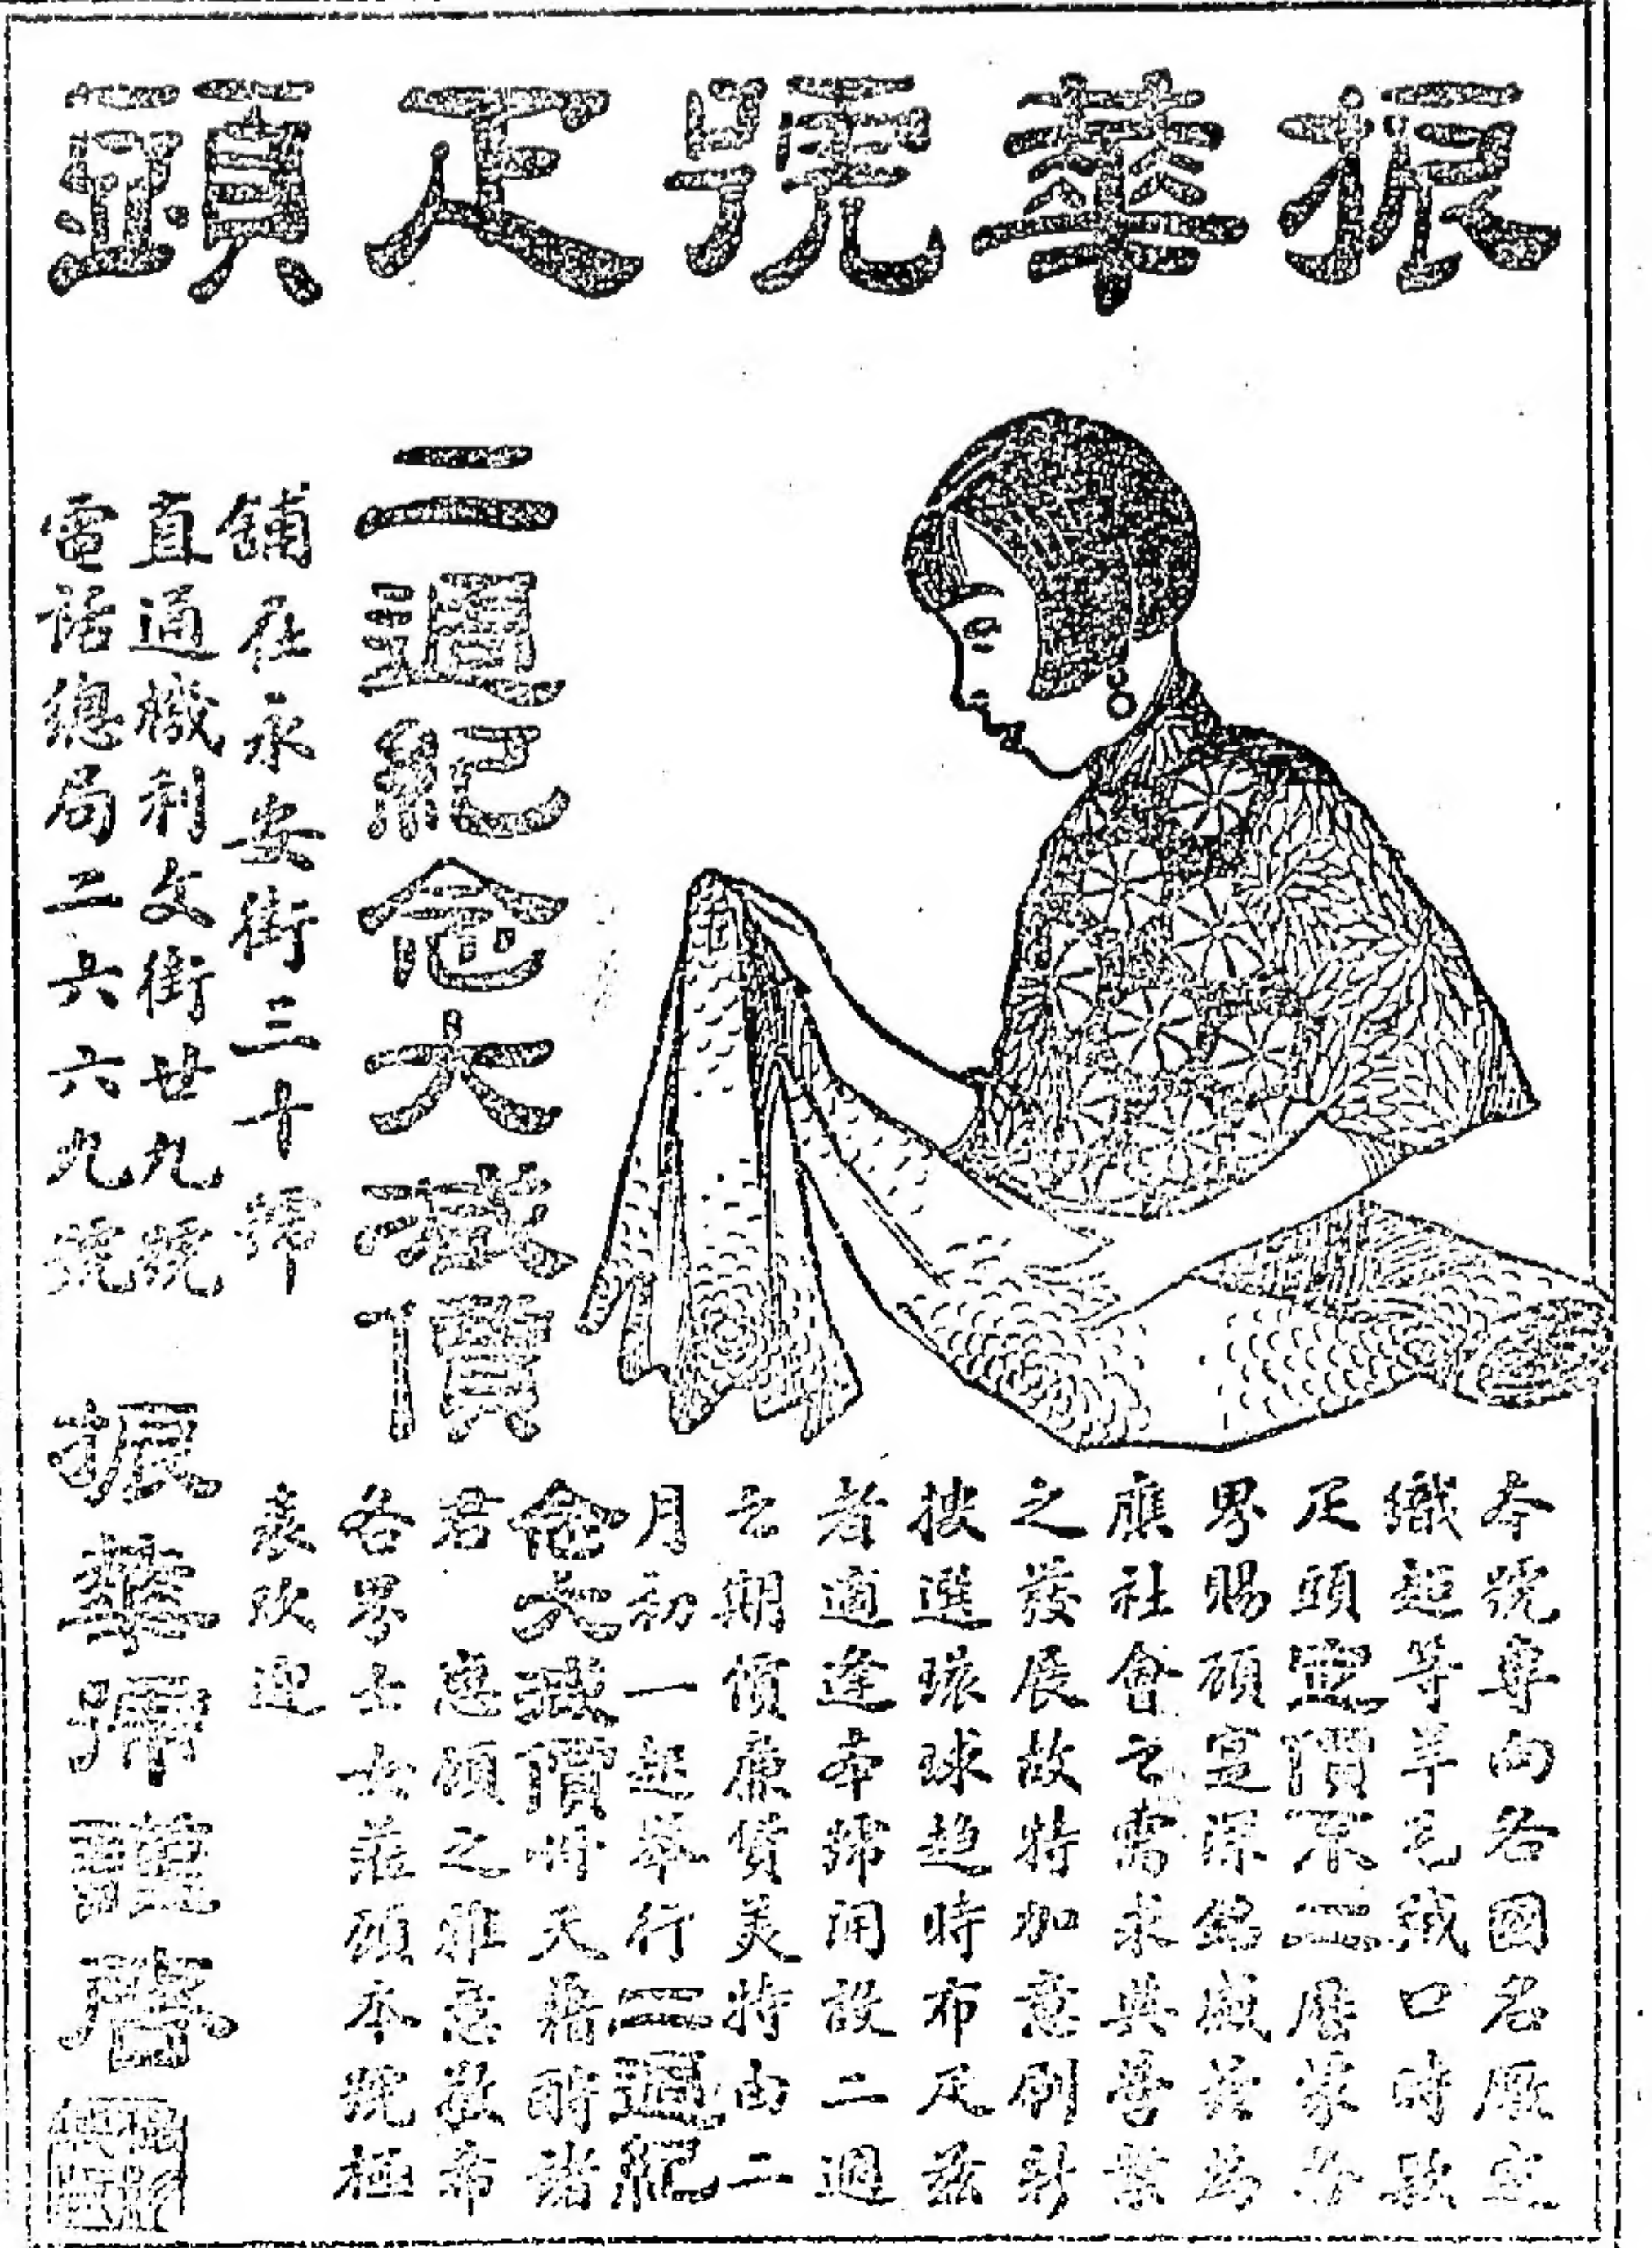 振華號疋頭
二週紀念大減價
舖在永安街三十號
直通機利文街廿九號
電話總局二六六六九號
本號專向各國名廠定
織起等羊毛絨口時款
疋頭定價不二屢蒙各
界賜顧寔深銘感茲為
應社會之需求與營業
之發展故特加意刷新
搜選環球趨時布疋茲
者適逢本號開設二週
之期價廉貨美特由二
月初一起舉行二週紀
念大減價卅天藉酬諸
君 惠顧之雅意敬希
各界士女蒞顧本號極
表歡迎
振華號謹啓